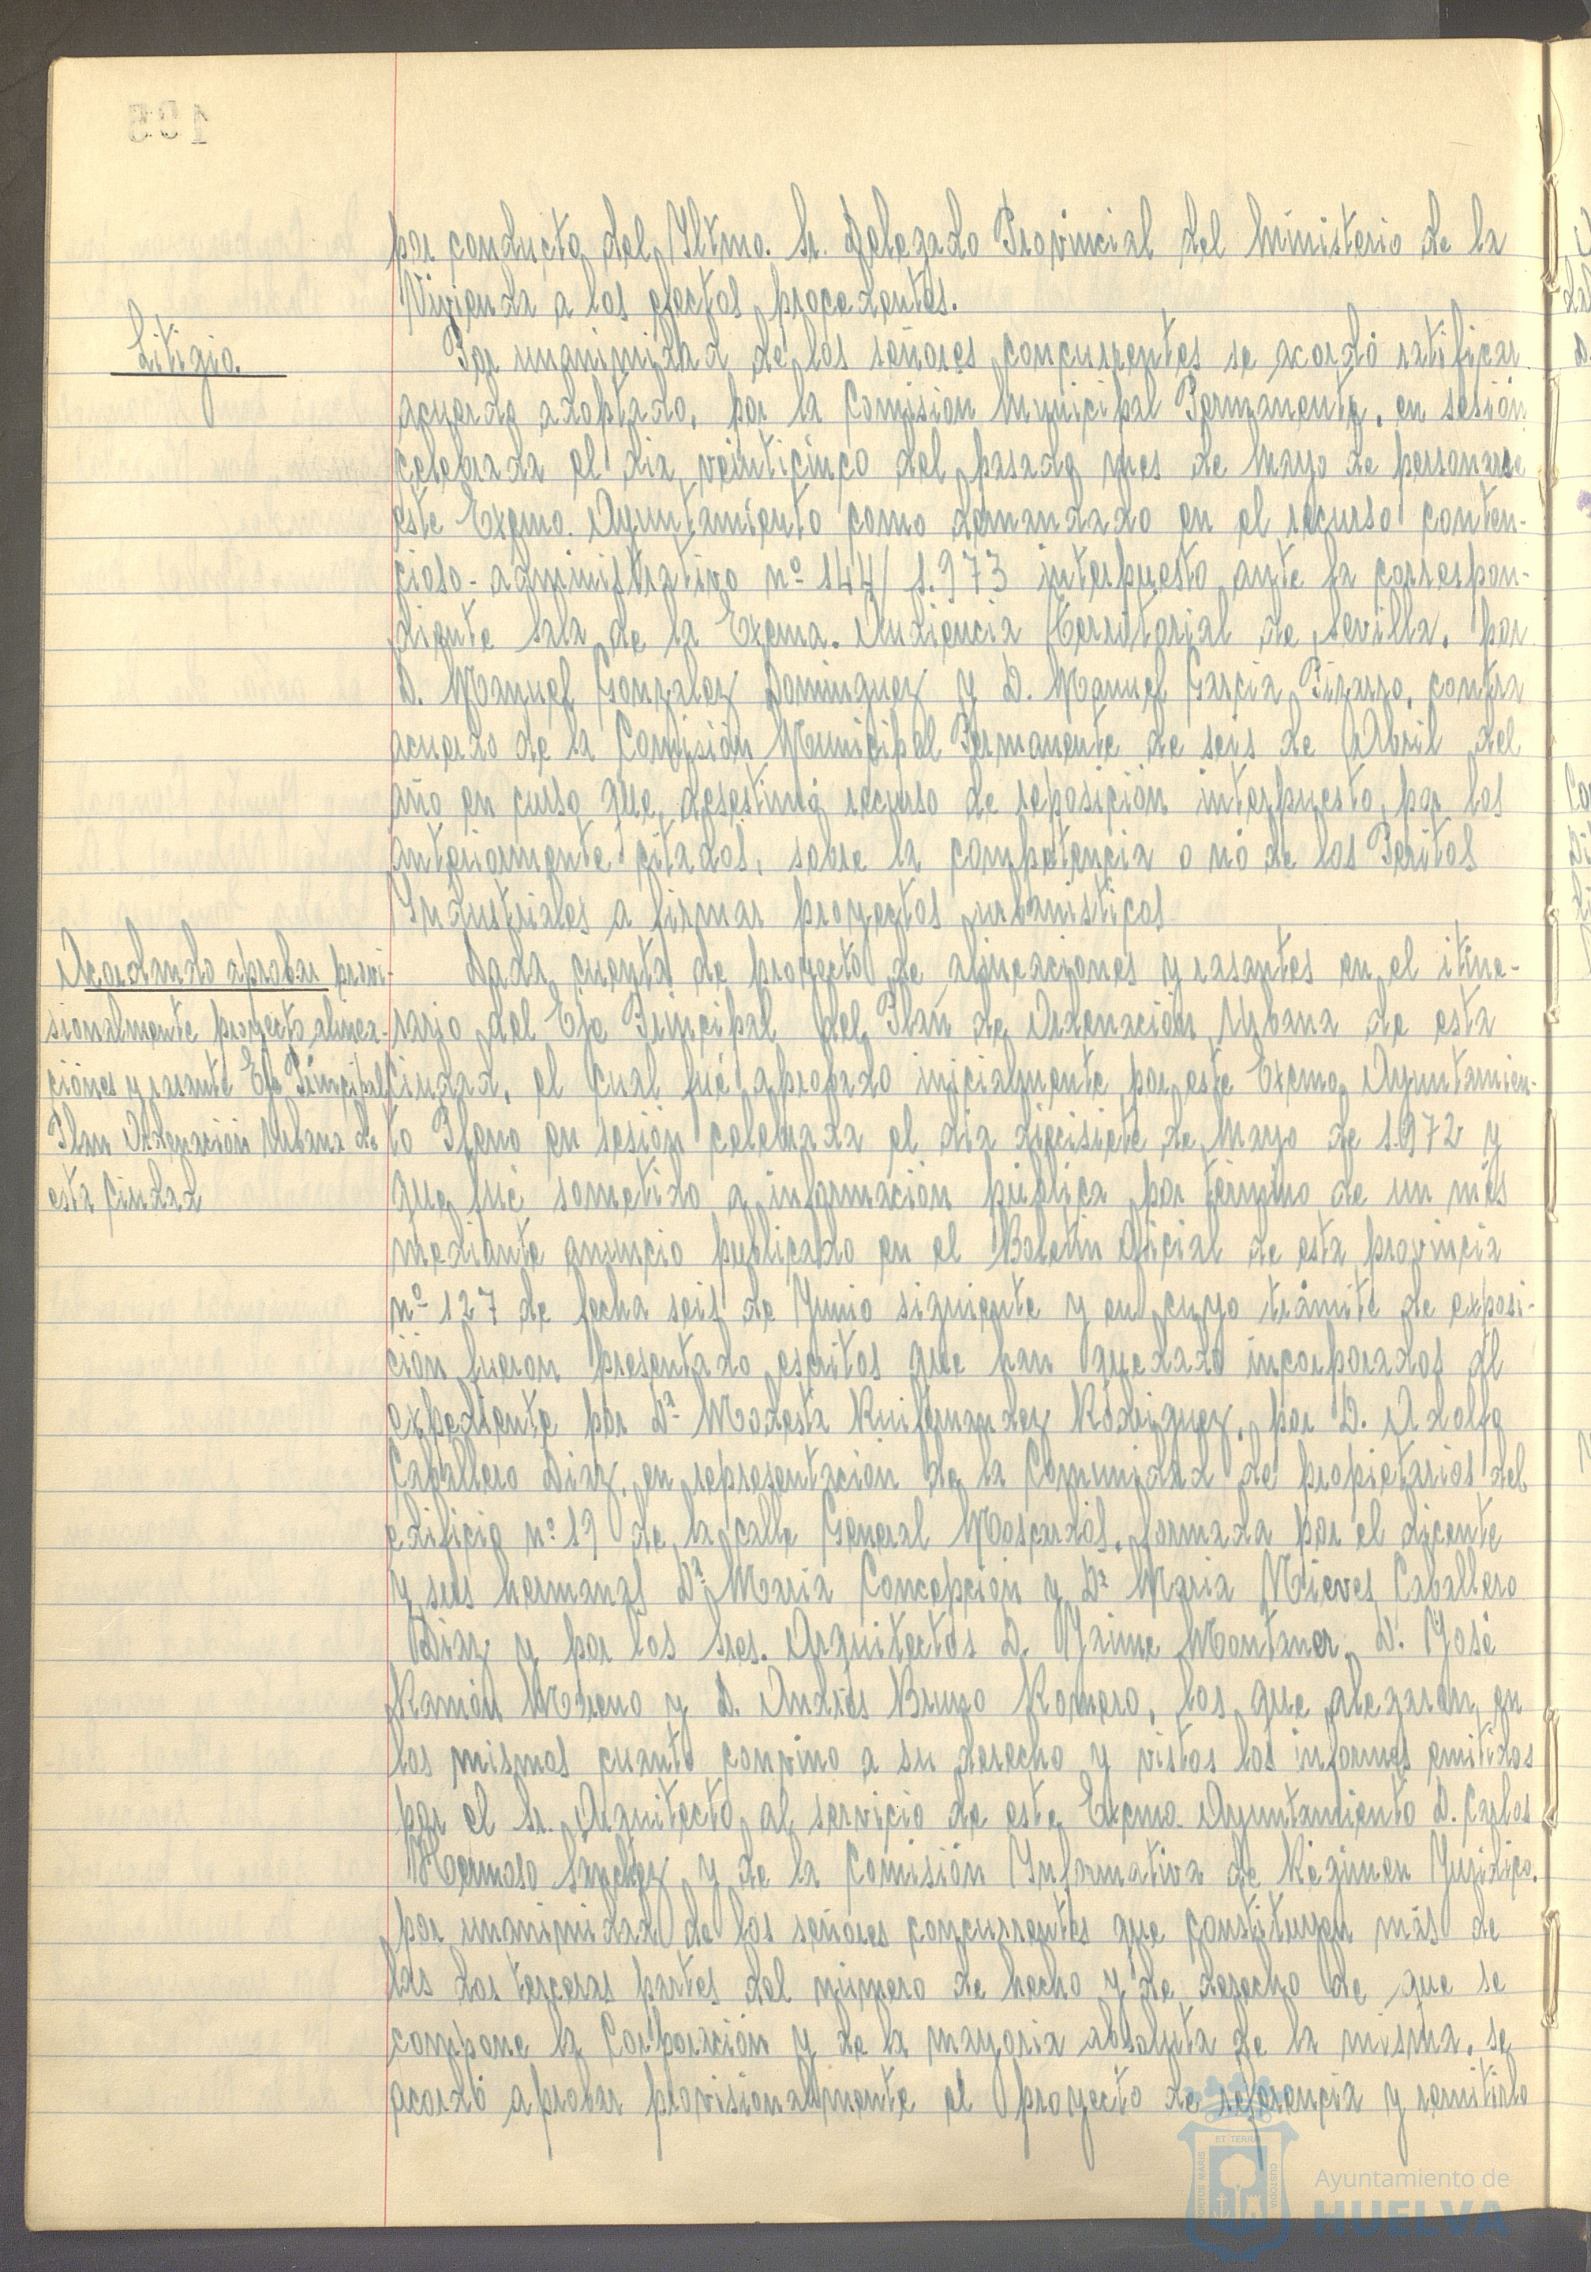 por conducto del Iltmo. Sr. Delegado Provincial del Ministerio de la
Vivienda a los efectos procedentes.
Litigio.
Por unanimidad de los señores concurrentes se acordó ratificar
acuerdo adoptado, por la Comisión Municipal Permanente, en sesión
celebrada el dia veinticinco del pasado mes de Mayo de personarse
este Excmo. Ayuntamiento como demandado en el recurso conten-
cioso-administrativo nº 144/1.973 interpuesto ante la correspon-
diente Sala de la Excma. Audiencia Territorial de Sevilla, por
D. Manuel Gonzalez Dominguez y D. Manuel Garcia Pizarro, contra
acuerdo de la Comisión Municipal Permanente de seis de Abril del
año en curso que desestimó recurso de reposición interpuesto por los
anteriormente citados, sobre la competencia o nó de los Peritos
Industriales a firmar proyectos urbanisticos
Acordando aprobar provi-
sionalmente proyecto alinea-
ciones y rasante Eje Principal
Plan Ordenación Urbana de
esta Ciudad
Dada cuenta de proyecto de alineaciones y rasantes en el itine-
rario del Eje Principal del Plan de Ordenación Urbana de esta
Ciudad, el cual fué aprobado inicialmente por este Excmo. Ayuntamien-
to Pleno en sesión celebrada el dia diecisiete de Mayo de 1.972 y
que fué sometido a información pública por término de un mes
mediante anuncio publicado en el Boletin Oficial de esta provincia
nº 127 de fecha seis de Junio siguiente y en cuyo trámite de exposi-
ción fueron presentado escritos que han quedado incorporados al
expediente por Dª Modesta Ruifernandez Rodriguez, por D. Adolfo
Caballero Diaz, en representación de la Comunidad de propietarios del
edificio nº 19 de la calle General Moscardós, formada por el dicente
y sus hermanas Dª Maria Concepción y Dª Maria Nieves Caballero
Diaz y por los Sres. Arquitectos D. Jaime Montaner, D. José
Ramón Moreno y D. Andrés Bruno Romero, los que alegaron en
los mismos cuanto convino a su derecho y vistos los informes emitidos
por el Sr. Arquitecto al servicio de este Excmo. Ayuntamiento D. Carlos
Hermoso Sanchez y de la Comisión Informativa de Régimen Juridico,
por unanimidad de los señores concurrentes que constituyen más de
las dos terceras partes del número de hecho y de derecho de que se
compone la Corporación y de la mayoria absoluta de la misma, se
acordó aprobar provisionalmente el proyecto de referencia y remitirlo
Ayuntamiento de
HUELVA